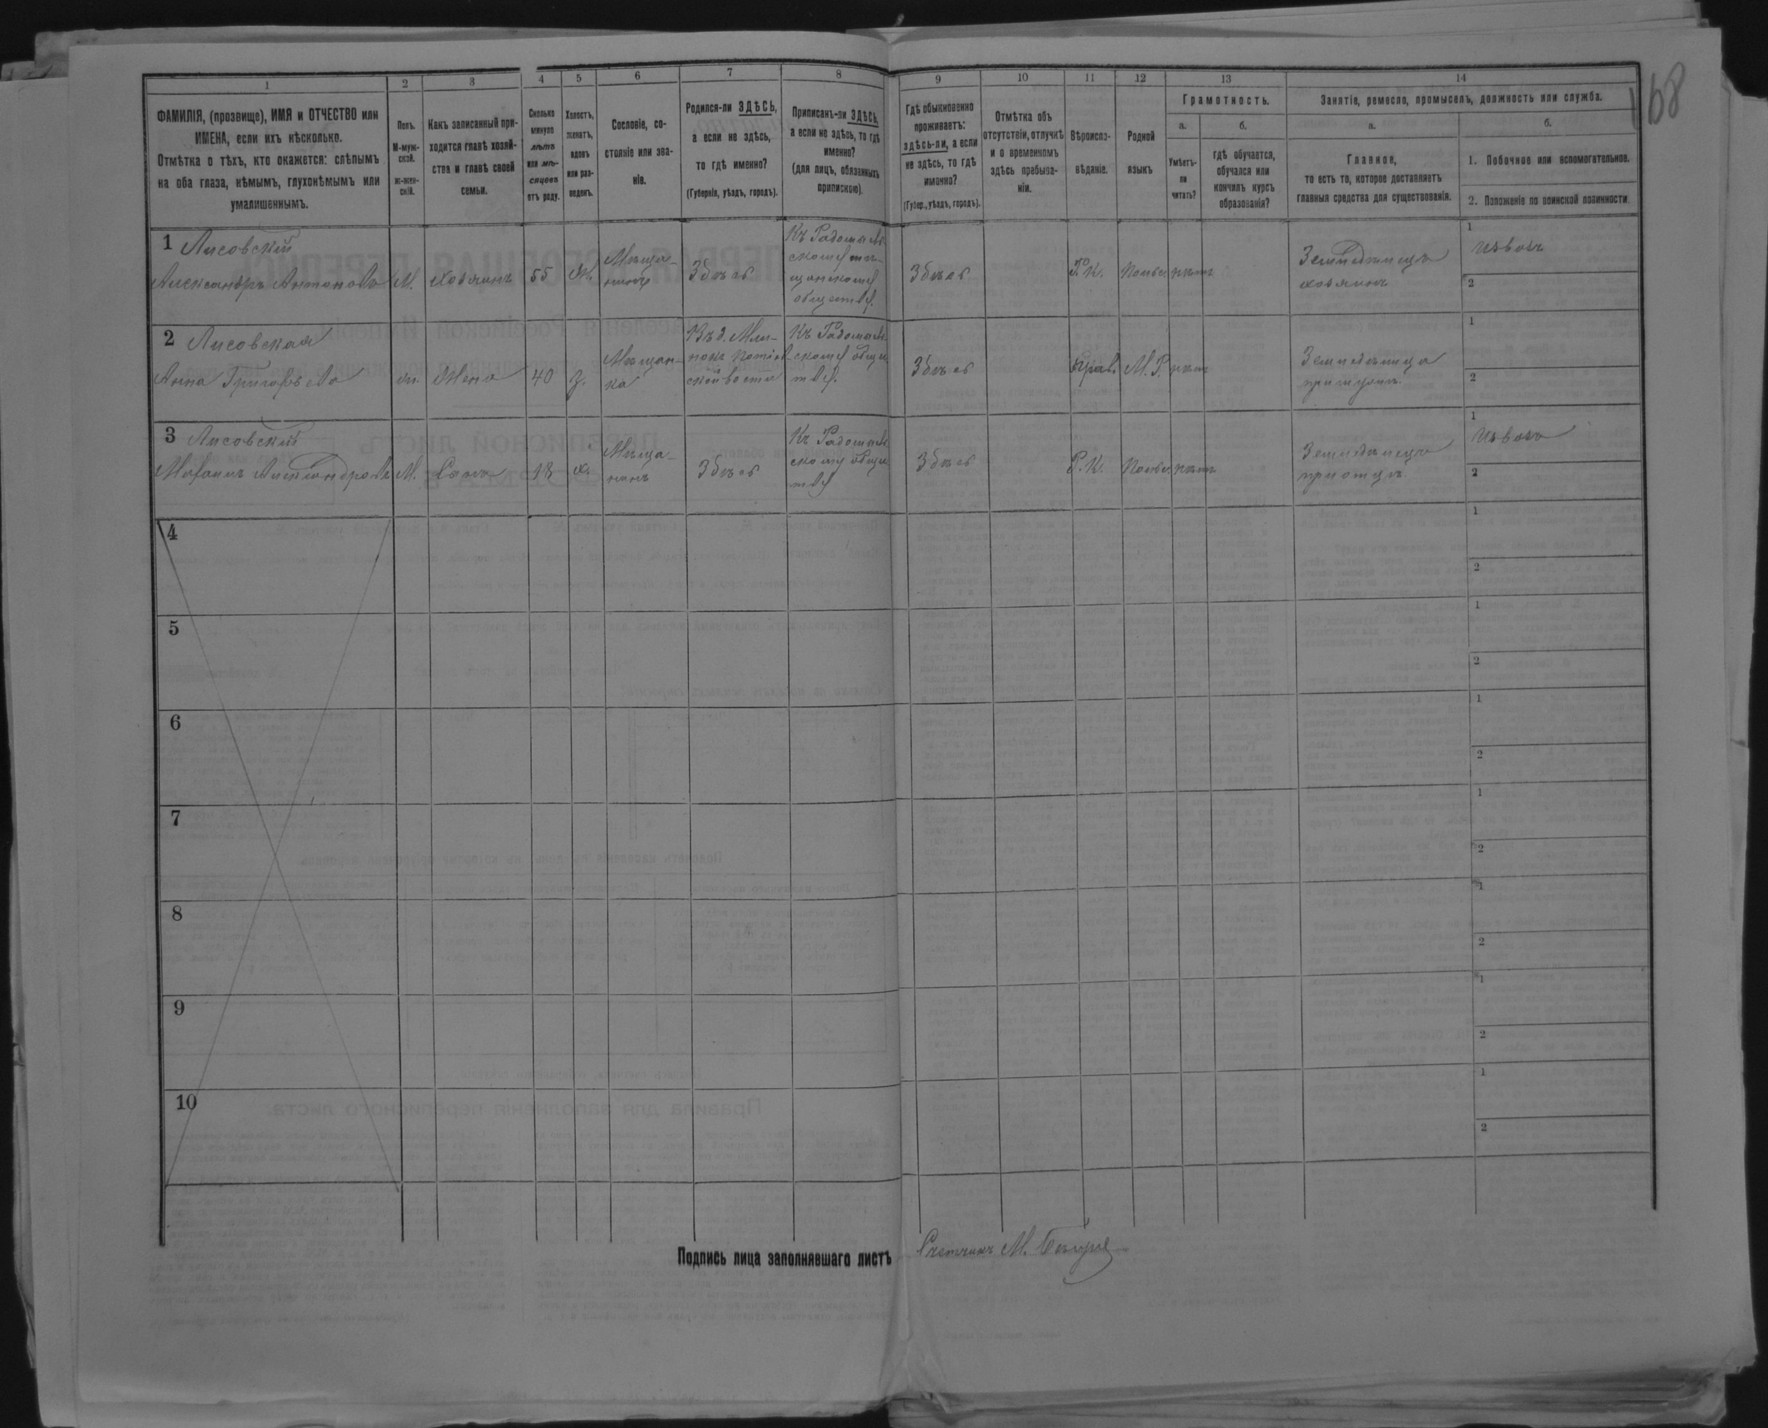 168
1
2
3
4
5
6
7
8
9
10
11
12
13
14
ФАМИЛІЯ, (прозвище), ИМЯ и ОТЧЕСТВО или
ИМЕНА, если ихъ нѣсколько.
Отмѣтка о тѣхъ, кто окажется: слѣпымъ
на оба глаза, нѣмымъ, глухонѣмымъ или
умалишеннымъ.
Полъ.
М-муж-
ской.
Ж-жен-
скій.
Какъ записанный при-
ходится главѣ хозяй-
ства и главѣ своей
семьи.
Сколько
минуло
лѣтъ
или мѣ-
сяцевъ
отъ роду.
Холостъ,
женатъ,
вдовъ
или раз-
веденъ.
Сословіе, со-
стояніе или зва-
ніе.
Родился-ли ЗДѢСЬ,
а если не здѣсь,
то гдѣ именно?
(Губернія, уѣздъ, городъ).
Приписанъ-ли ЗДѢСЬ,
а если не здѣсь, то гдѣ
именно?
(для лицъ, обязанныхъ
припискою).
Гдѣ обыкновенно
проживаетъ:
здѣсь-ли, а если
не здѣсь, то гдѣ
именно?
(Губер., уѣздъ, городъ).
Отмѣтка объ
отсутствіи, отлучкѣ
и о временномъ
здѣсь пребыва-
ніи.
Вѣроиспо-
вѣданіе.
Родной
языкъ
Грамотность.
а.
б.
Умѣетъ-
ли
читать?
гдѣ обучается,
обучался или
кончилъ курсъ
образованія?
Занятіе, ремесло, промыселъ, должность или служба.
а.
Главное,
то есть то, которое доставляетъ
главныя средства для существованія.
б.
1. Побочное или вспомогательное.
2. Положеніе по воинской повинности
1 Лисовскій
Александръ Антоновъ
М.
хозяинъ
55
Ж
Мѣща-
нинъ
Здѣсь
Къ Радомысль-
скому мѣ-
щанскому
обществу.
Здѣсь
Р. К.
Польск
нѣтъ
Земледѣлецъ
хозяинъ
1
извозъ
2
2 Лисовская
Анна Григорьева
ж
Жена
40
з.
Мѣщан-
ка
Къ Радомысль-
скому общес
тву.
Здѣсь
Прав.
М. Р.
нѣтъ
Земледѣлица
при мужѣ
1
2
3 Лисовскій
Александровъ
М.
Сынъ
13
х
Мѣща-
нинъ
Здѣсь
Къ Радомысль-
скому общес
тву
Здѣсь
Р. К.
Польск
нѣтъ
Земледѣлецъ
при отцѣ
1
Извозъ
2
4
1
2
5
1
2
6
1
2
7
1
2
8
1
2
9
1
2
10
1
2
Подпись лица заполнявшаго листъ
Счетчикъ М.